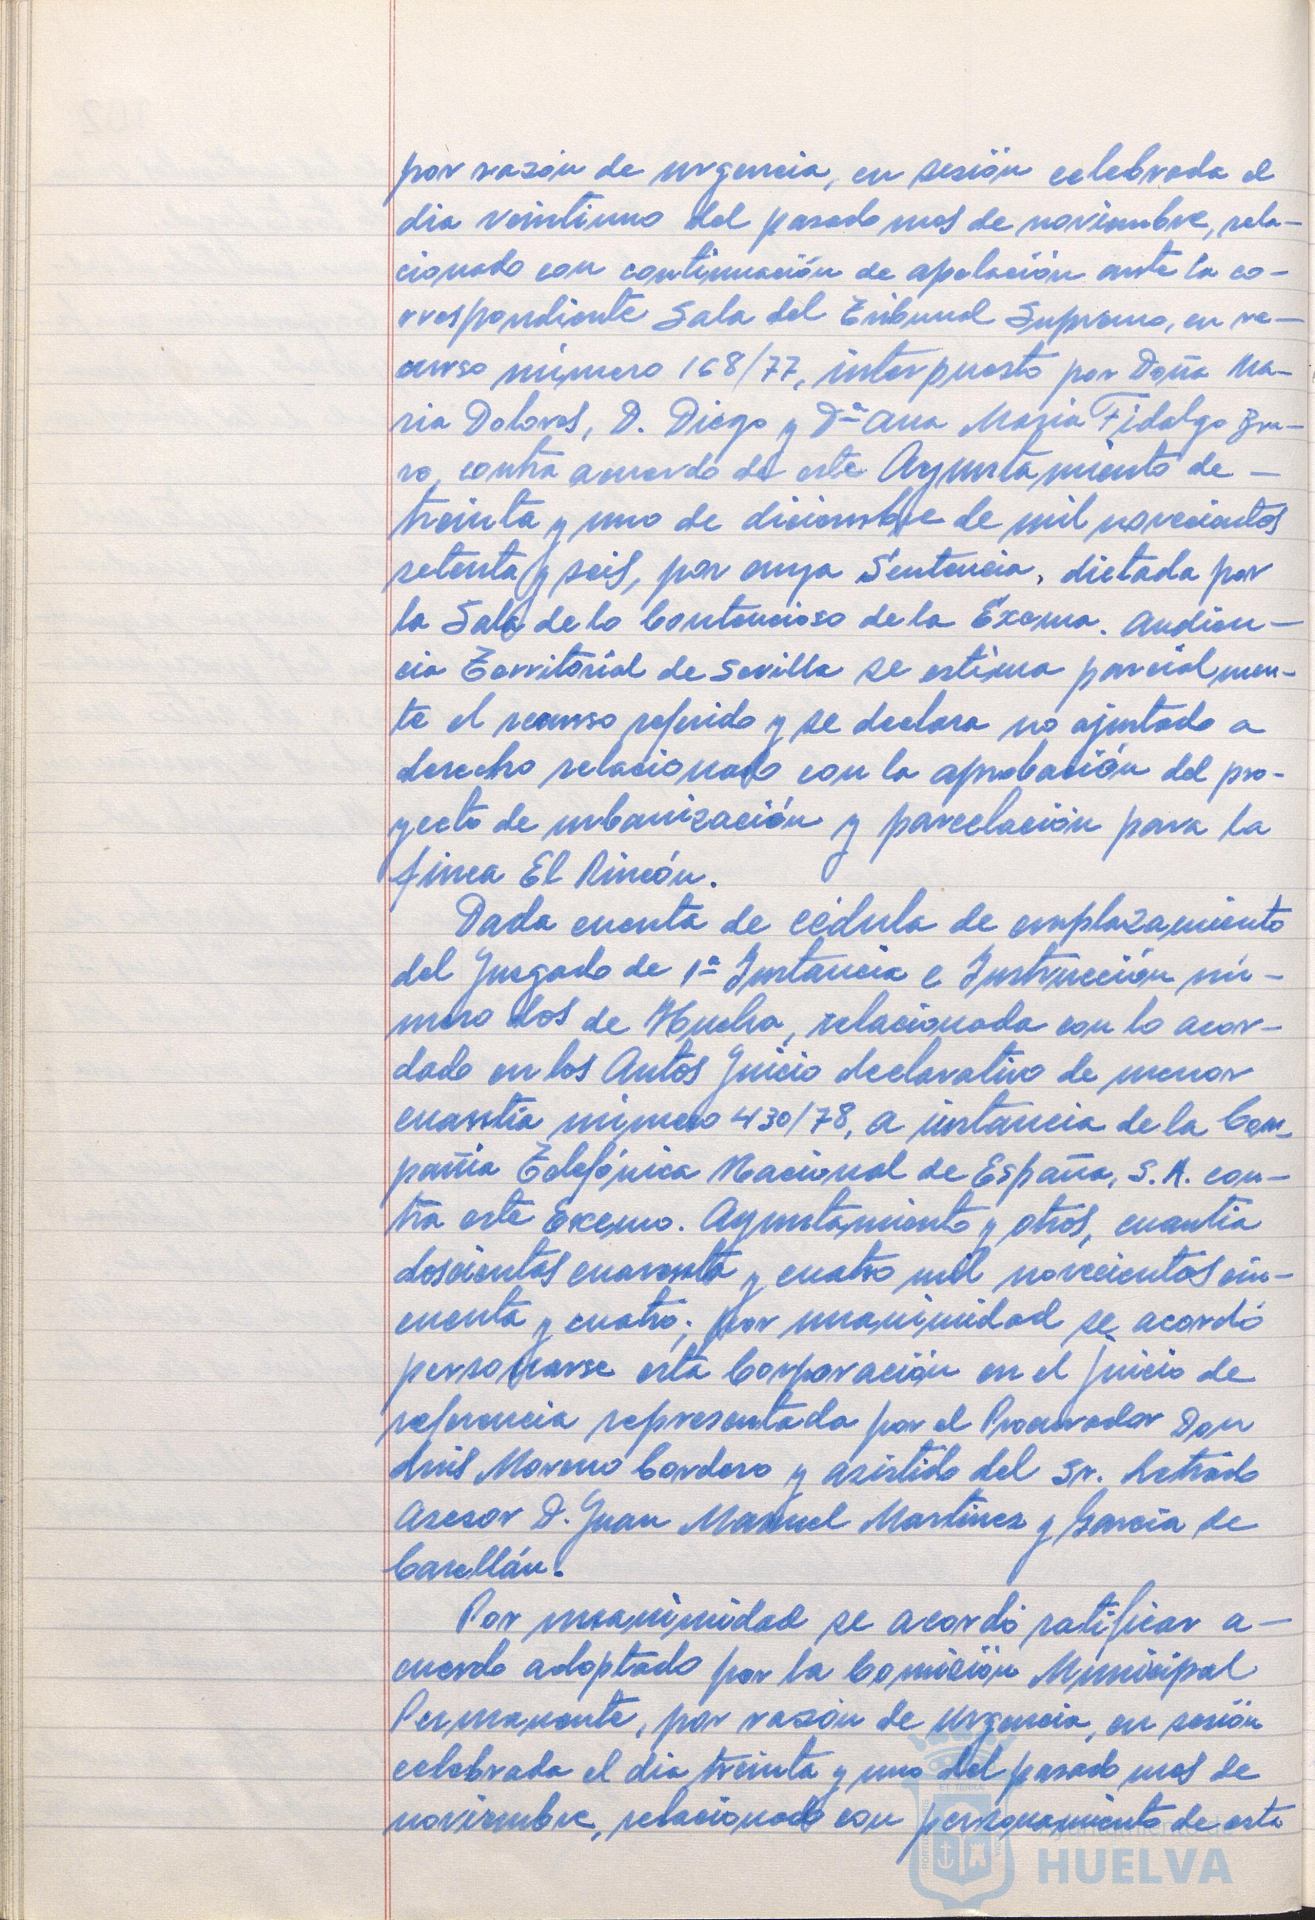 por razón de urgencia, en sesión celebrada el
dia veintiuno del pasado mes de noviembre, rela-
cionado con continuación de apelación ante la co-
rrespondiente Sala del Tribunal Supremo, en re-
curso número 168/77, interpuesto por Doña Ma-
ria Dolores, D. Diego y Dª Ana Maria Fidalgo Bra-
vo, contra acuerdo de este Ayuntamiento de -
treinta y uno de diciembre de mil novecientos
setenta y seis, por cuya Sentencia, dictada por
la Sala de lo Contencioso de la Excma. Audien-
cia Territorial de Sevilla se estima parcialmen-
te el recurso referido y se declara no ajustado a
derecho relacionado con la aprobación del pro-
yecto de urbanización y parcelación para la
finca El Rincón.
Dada cuenta de cédula de emplazamiento
del Juzgado de 1ª Instancia e Instrucción nú-
mero dos de Huelva, relacionada con lo acor-
dado en los Autos Juicio declarativo de menor
cuantía número 430/78, a instancia de la Com-
pañia Telefónica Nacional de España, S.A. con-
tra este Excmo. Ayuntamiento y otros, cuantia
doscientas cuarenta y cuatro mil novecientos cin-
cuenta y cuatro; por unanimidad se acordó
personarse esta Corporación en el juicio de
referencia representada por el Procurador Don
Luis Moreno Cordero y asistido del Sr. Letrado
Asesor D. Juan Manuel Martinez y García de
Casellán.
Por unanimidad se acordó ratificar a-
cuerdo adoptado por la Comisión Municipal
Permanente, por razón de urgencia, en sesión
celebrada el dia treinta y uno del pasado mes de
noviembre, relacionado con personamiento de esta
HUELVA